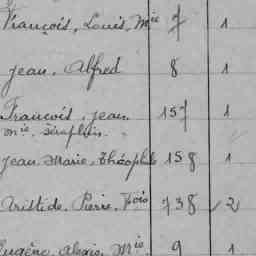 François, Louis, Mie 7 1
Jean, Alfred 8 1
François, Jean 157 1
Mie, Séraphin
Jean Marie, Théophile 158 1
Aristide, Pierre, Fois 738 2
Eugène, Alexis, Mie 9 1